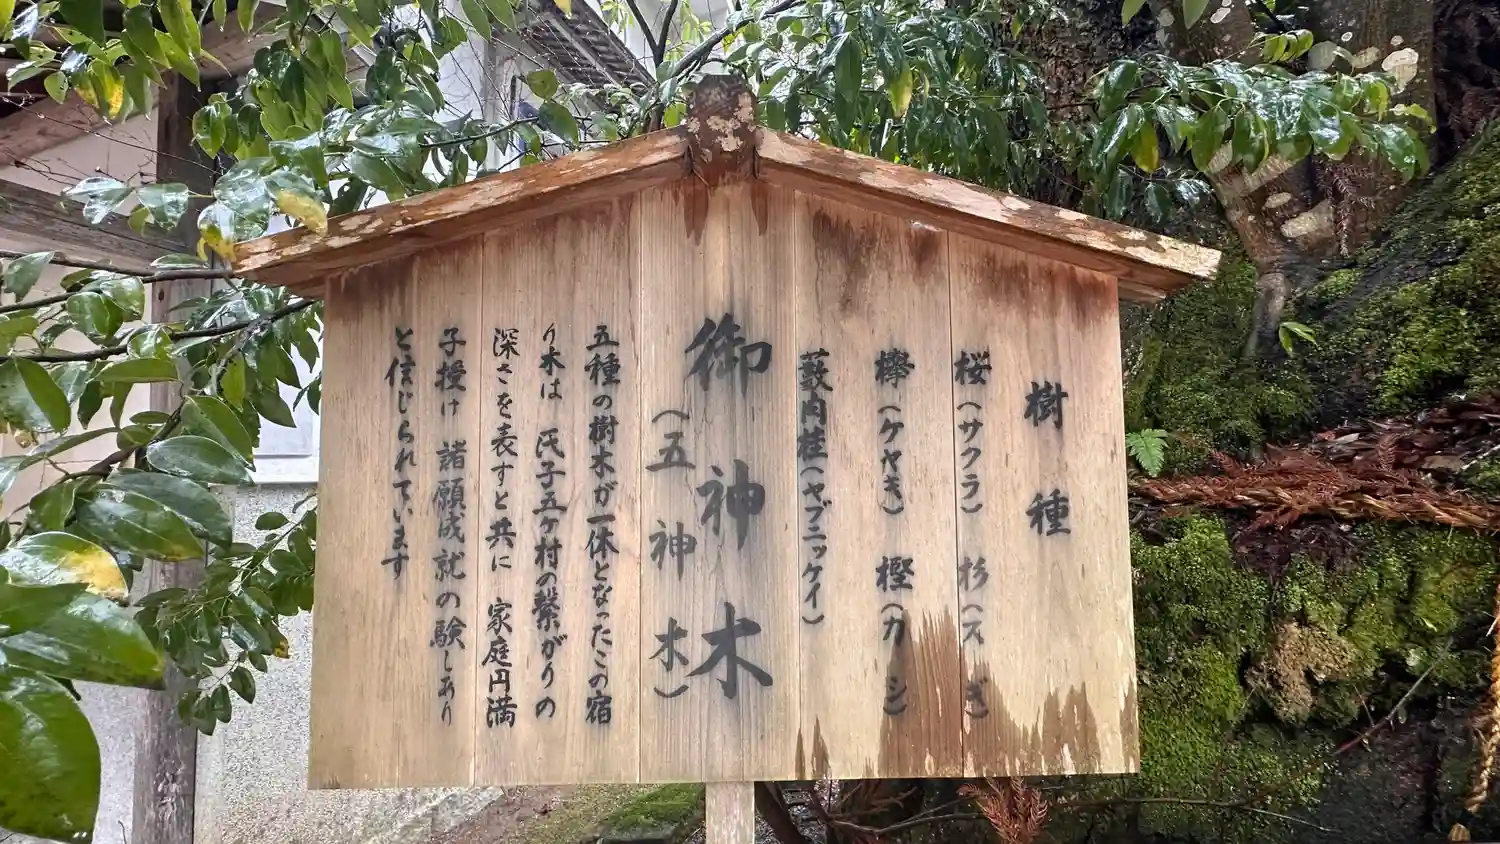 樹種
桜(サクラ) 杉(スギ)
欅(ケヤキ) 樫(カシ)
薮肉桂(ヤブニッケイ)
御神木
(五神木)
五種の樹木が一体となったこの宿
り木は 氏子五ケ村の繋がりの
深さを表すと共に 家庭円満
子授け 諸願成就の験しあり
と信じられています